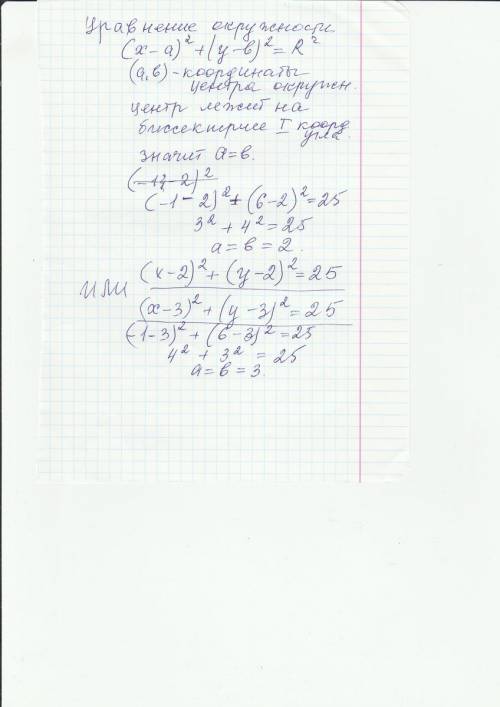 Уравнение окружности
(x-a)² + (y-в)² = R²
(а,в) - координаты
центра окружн.
центр лежит на
биссектрисе I коорд
угла.
значит а=в.
(-1-2)² + (6-2)² = 25
3² + 4² = 25
а = в = 2.
(x-2)² + (y-2)² = 25
ИЛИ
(x-3)² + (y-3)² = 25
(-1-3)² + (6-3)² = 25
4² + 3² = 25
а = в = 3.